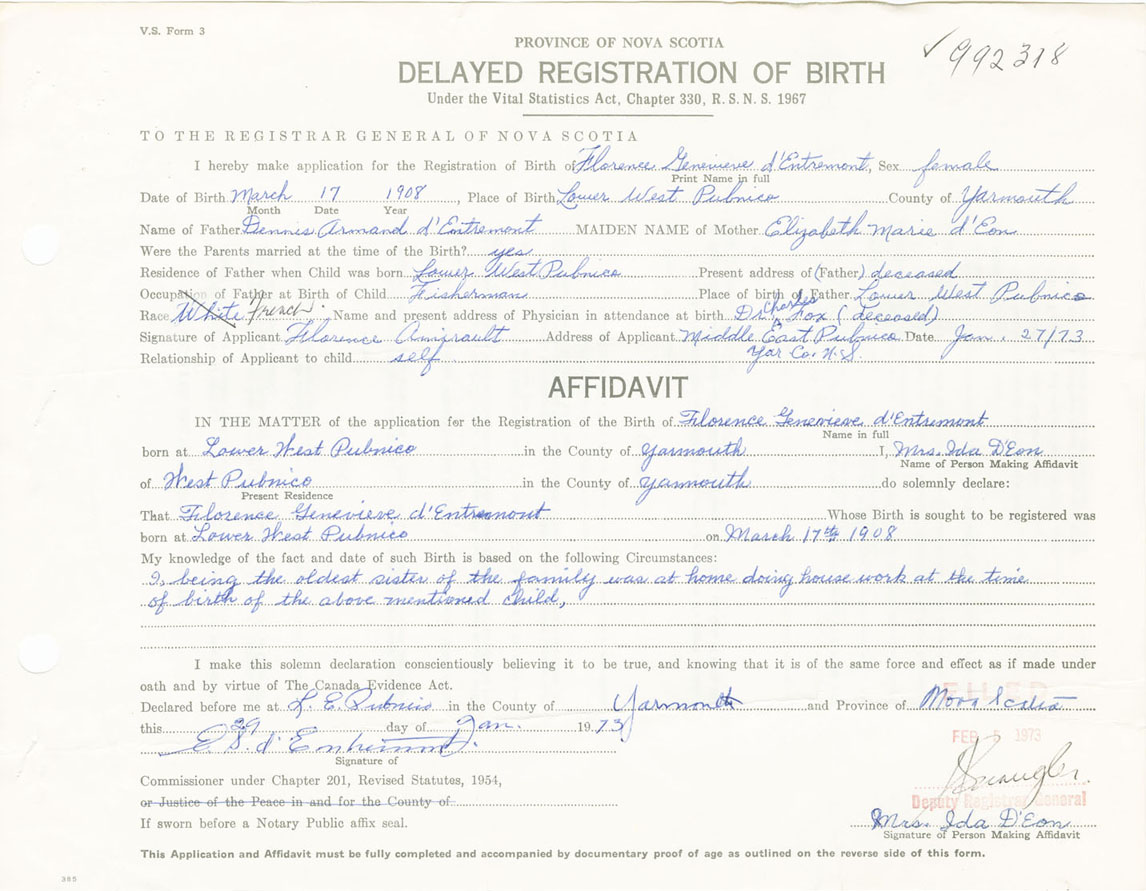 V.S. Form 3
PROVINCE OF NOVA SCOTIA
✓992318
DELAYED REGISTRATION OF BIRTH
Under the Vital Statistics Act, Chapter 330, R. S. N. S. 1967
TO THE REGISTRAR GENERAL OF NOVA SCOTIA
I hereby make application for the Registration of Birth of Florence Genevieve d'Entremont, Sex female
Print Name in full
Date of Birth March 17 1908, Place of Birth Lower West Pubnico County of Yarmouth
Month Date Year
Name of Father Dennis Armand d'Entremont MAIDEN NAME of Mother Elizabeth Marie d'Eon
Were the Parents married at the time of the Birth? yes
Residence of Father when Child was born Lower West Pubnico Present address of (Father) deceased
Occupation of Father at Birth of Child Fisherman Place of birth of Father Lower West Pubnico
Race White French Name and present address of Physician in attendance at birth Dr. Charles Fox (deceased)
Signature of Applicant Florence Amirault Address of Applicant Middle East Pubnico Date Jan. 27/73
Relationship of Applicant to child self Yar Co. N.S.
AFFIDAVIT
IN THE MATTER of the application for the Registration of the Birth of Florence Genevieve d'Entremont
Name in full
born at Lower West Pubnico in the County of Yarmouth I, Mrs. Ida D'Eon
Name of Person Making Affidavit
of West Pubnico in the County of Yarmouth do solemnly declare:
Present Residence
That Florence Genevieve d'Entremont Whose Birth is sought to be registered was
born at Lower West Pubnico on March 17th 1908
My knowledge of the fact and date of such Birth is based on the following Circumstances:
I, being the oldest sister of the family was at home doing house work at the time
of birth of the above mentioned child,
I make this solemn declaration conscientiously believing it to be true, and knowing that it is of the same force and effect as if made under
oath and by virtue of The Canada Evidence Act.
FILED
Declared before me at L. E. Pubnico in the County of Yarmouth and Province of Nova Scotia
this 29 day of Jan. 1973
FEB 5 1973
E S. d'Entremont
Signature of
Commissioner under Chapter 201, Revised Statutes, 1954,
or Justice of the Peace in and for the County of
Deputy Registrar General
If sworn before a Notary Public affix seal.
Mrs. Ida D'Eon
Signature of Person Making Affidavit
This Application and Affidavit must be fully completed and accompanied by documentary proof of age as outlined on the reverse side of this form.
385